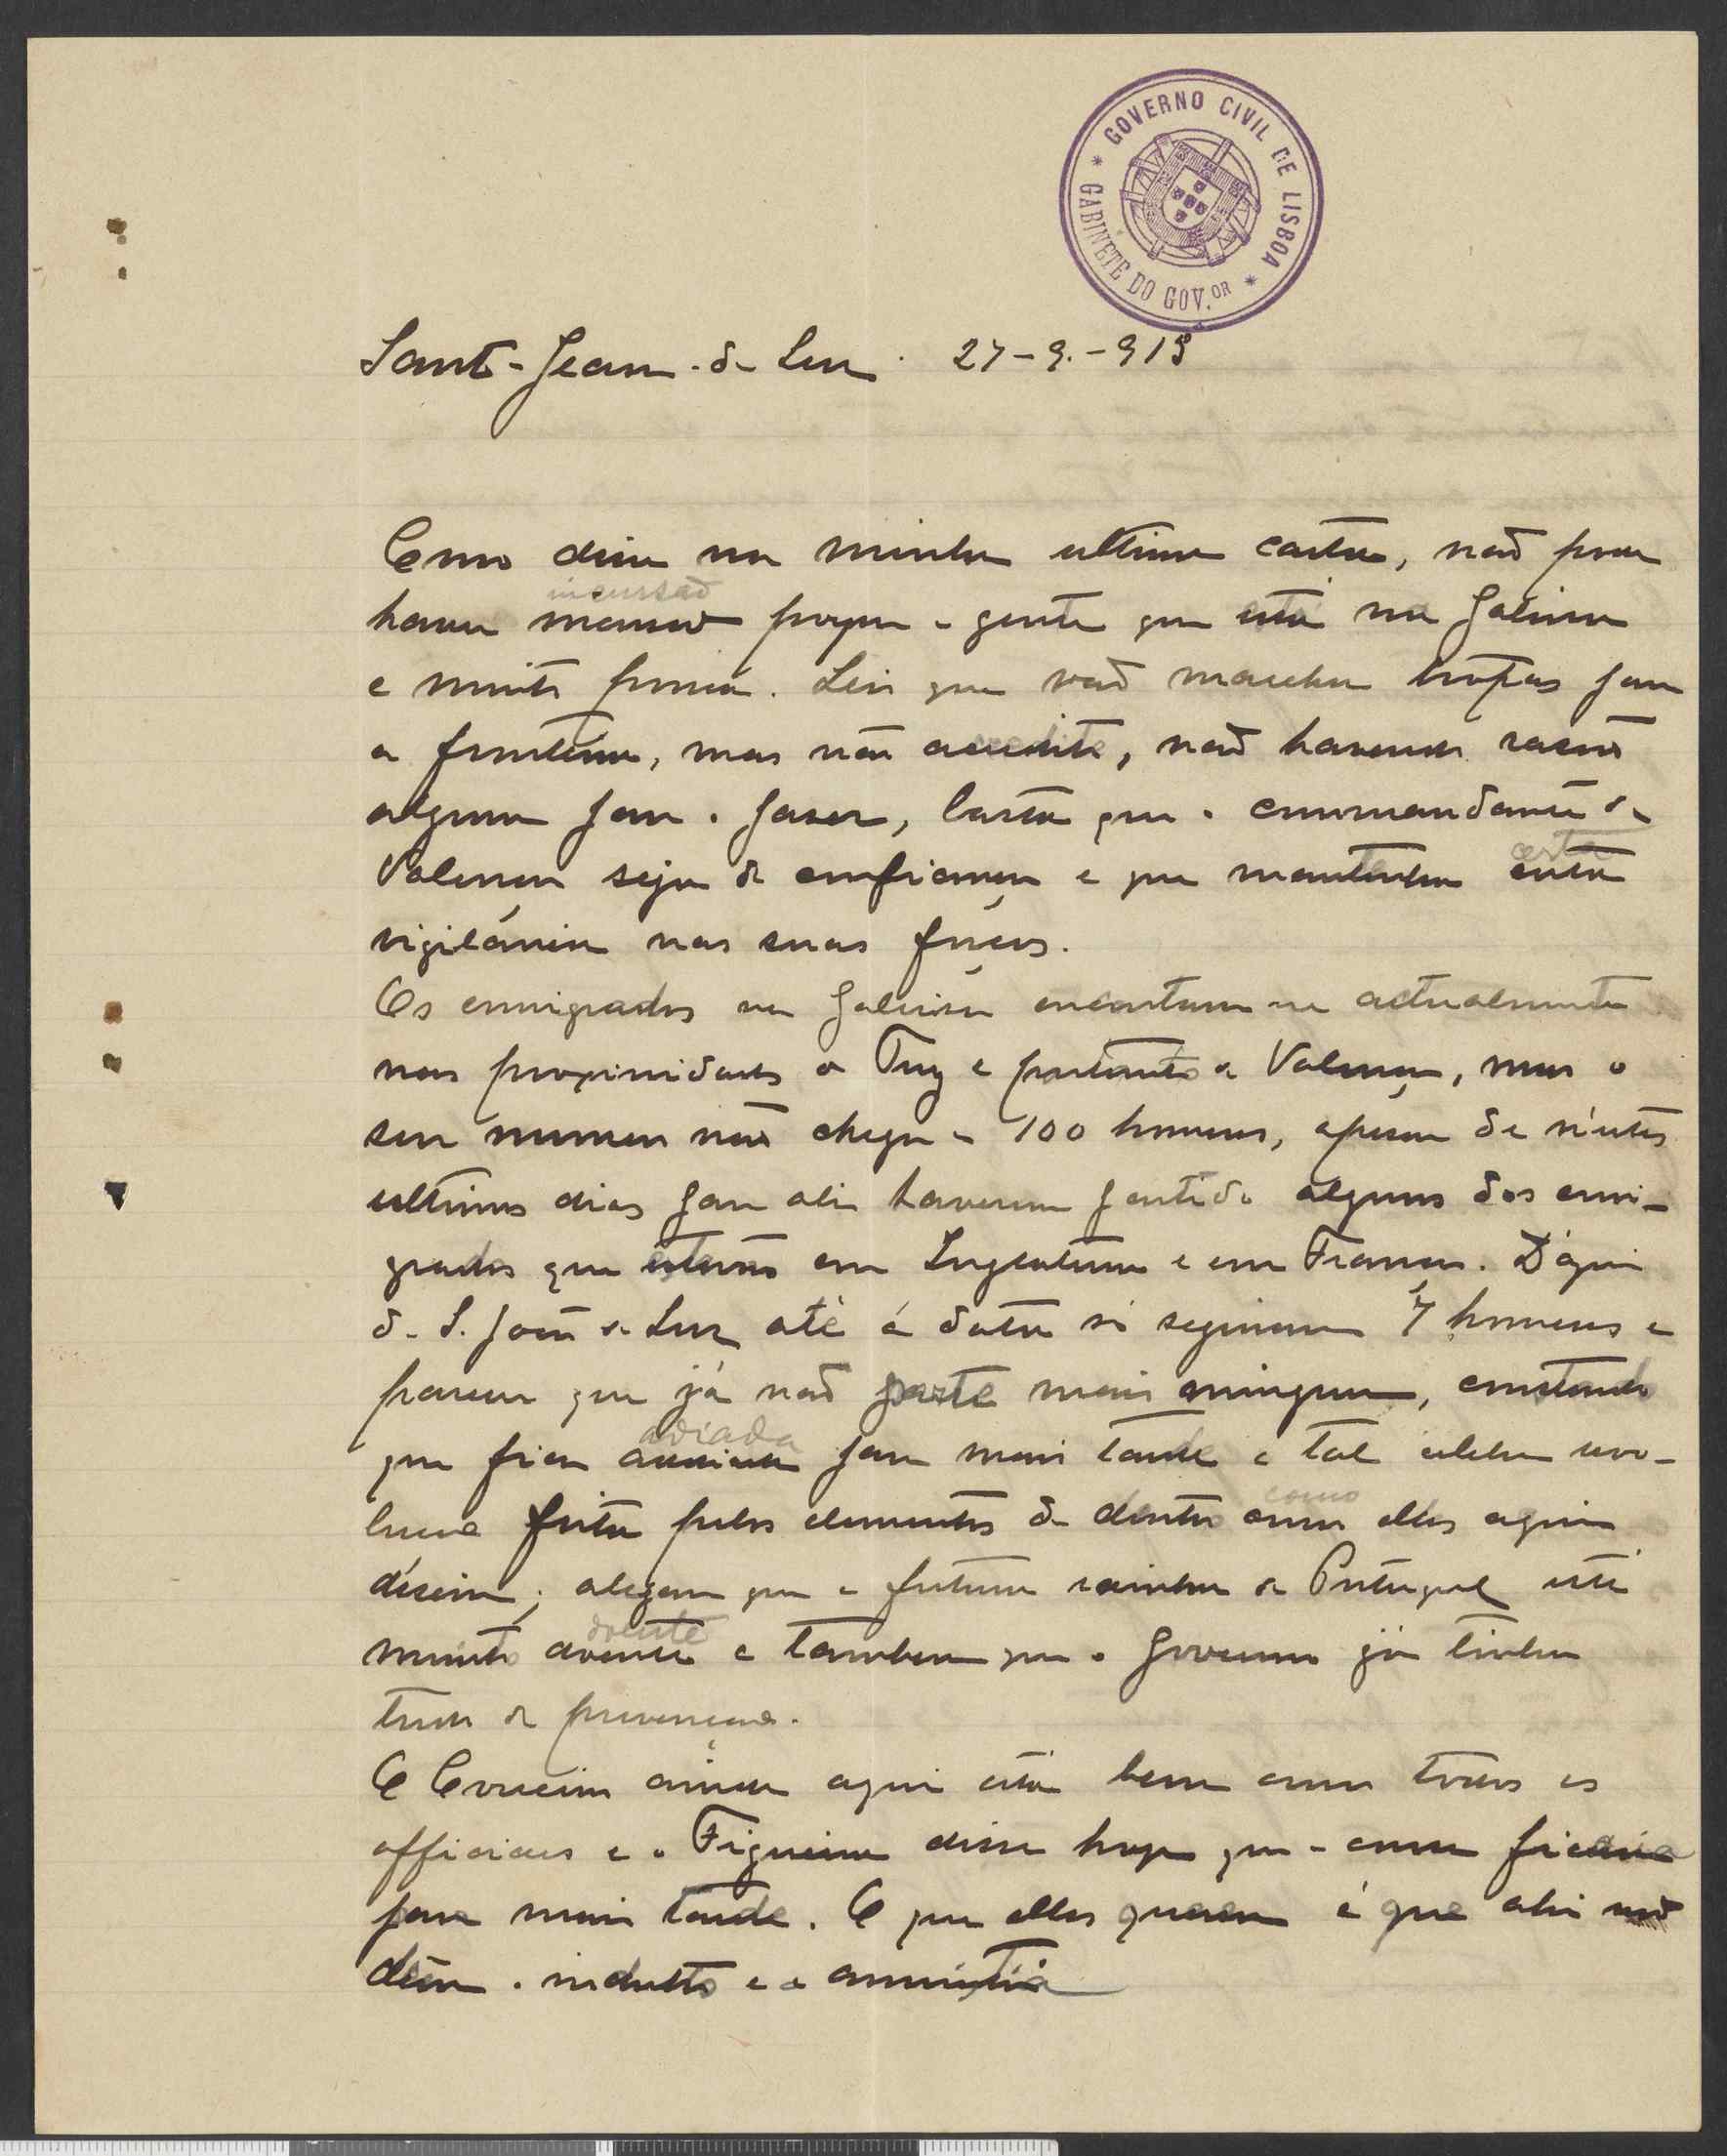 GOVERNO CIVIL DE LISBOA
GABINETE DO GOV.OR
Saint-Jean-de Luz. 27-9.-913
Como disse na minha ultima carta, não pode
incursão
haver porque a gente que está na Galisa
é muito pouca. Leio que vão marchar tropas para
a fronteira, mas não acredito, não havendo rasão
alguma para o faser, basta que o commandante de
certa
Valença seja de confiança e que mantenha certa
vigilância nas suas forças.
Os emmigrados na Galisa encontram se actualmente
nas proximidades de Tuy e portanto de Valença, mas o
seu numero não chega a 100 homens, apesar de n'estes
ultimos dias para ali haverem partido alguns dos emi-
grados que estavão em Inglaterra e em França. D'aqui
de S. João de Luz até á data só seguiram 7 homens e
parece que já não parte mais ninguem, constando
adiada
que fica addiada para mais tarde a tal celebre revo-
como
lução feita pelos elementos de dentro como elles aqui
disem; alegam que a futura rainha de Portugal está
doente
muito doente e tambem que o Governo já tinha
tudo de prevenção.
O Couceiro ainda aqui está bem como todos os
officiaes e o Figueira disse hoje que a cousa ficaria
para mais tarde. O que elles querem é que ahi
dêem o indulto e a amnistia